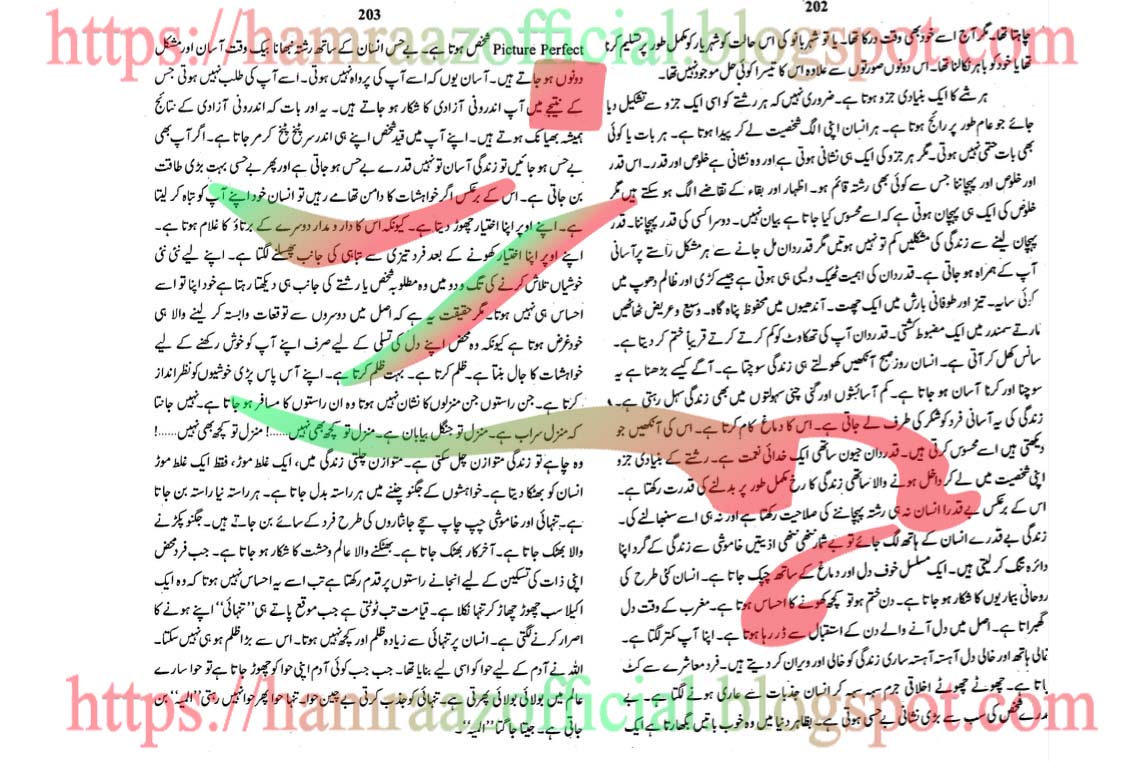 202
چاہتا تھا۔ مگر آج اسے خود بھی وقت درکار تھا۔ یا تو شہر بانو کی اس حالت کو شہریار کو مکمل طور پر تسلیم کرنا
تھا یا خود کو باہر نکالنا تھا۔ اس دونوں صورتوں سے علاوہ اس کا تیسرا کوئی حل موجود نہیں تھا۔
ہر شے کا ایک بنیادی جزو ہوتا ہے۔ ضروری نہیں کہ ہر رشتے کو اسی ایک جزو سے تشکیل دیا
جائے جو عام طور پر رائج ہوتا ہے۔ ہر انسان اپنی الگ شخصیت لے کر پیدا ہوتا ہے۔ ہر بات یا کوئی
بھی بات حتمی نہیں ہوتی۔ مگر ہر جزو کی ایک ہی نشانی ہوتی ہے اور وہ نشانی ہے خلوص اور قدر۔ اس قدر
اور خلوص اور پہچاننا جس سے کوئی بھی رشتہ قائم ہو۔ اظہار اور بقاء کے تقاضے الگ ہو سکتے ہیں مگر
خلوص کی ایک ہی پہچان ہوتی ہے کہ اسے محسوس کیا جاتا ہے بیان نہیں۔ دوسرا کسی کی قدر پہچاننا۔ قدر
پہچان لینے سے زندگی کی مشکلیں کم تو نہیں ہوتیں مگر قدردان مل جانے سے ہر مشکل راستے پر آسانی
آپ کے ہمراہ ہو جاتی ہے۔ قدردان کی اہمیت ٹھیک ویسی ہی ہوتی ہے جیسے کڑی اور ظالم دھوپ میں
کوئی سایہ۔ تیز اور طوفانی بارش میں ایک چھت۔ آندھیوں میں محفوظ پناہ گاہ۔ وسیع و عریض ٹھاٹھیں
مارتے سمندر میں ایک مضبوط کشتی۔ قدردان آپ کی تھکاوٹ کو کم کرتے کرتے قریباً ختم کر دیتا ہے۔
سانس کھل کر آتی ہے۔ انسان روز صبح آنکھیں کھولتے ہی زندگی سوچتا ہے۔ آگے کیسے بڑھنا ہے یہ
سوچنا اور کرنا آسان ہو جاتا ہے۔ کم آسائشوں اور گنی چنی سہولتوں میں بھی زندگی سہل رہتی ہے۔
زندگی کی یہ آسانی فرد کو شکر کی طرف لے جاتی ہے۔ اس کا دماغ کام کرتا ہے۔ اس کی آنکھیں جو
دیکھتی ہیں اسے محسوس کرتی ہیں۔ قدردان جیون ساتھی ایک خدائی نعمت ہے۔ رشتے کے بنیادی جزو
اپنی شخصیت میں لے کر داخل ہونے والا ساتھی زندگی کا رخ مکمل طور پر بدلنے کی قدرت رکھتا ہے۔
اس کے برعکس بے قدرا انسان نہ ہی رشتہ پہچاننے کی صلاحیت رکھتا ہے اور نہ ہی اسے سنبھالنے کی۔
زندگی بے قدرے انسان کے ہاتھ لگ جائے تو بے شمار ننھی ننھی اذیتیں خاموشی سے زندگی کے گرد اپنا
دائرہ تنگ کر لیتی ہیں۔ ایک مسلسل خوف دل اور دماغ کے ساتھ چپک جاتا ہے۔ انسان کئی طرح کی
روحانی بیماریوں کا شکار ہو جاتا ہے۔ دن ختم ہو تو کچھ کھونے کا احساس ہوتا ہے۔ مغرب کے وقت دل
گھبراتا ہے۔ اصل میں دل آنے والے دن کے استقبال سے ڈر رہا ہوتا ہے۔ اپنا آپ کمتر لگتا ہے۔
خالی ہاتھ اور خالی دل آہستہ آہستہ ساری زندگی کو خالی اور ویران کر دیتے ہیں۔ فرد معاشرے سے کٹ
جاتا ہے۔ چھوٹے چھوٹے اخلاقی جرم سہہ سہہ کر انسان جذبات سے عاری ہونے لگتا ہے۔ بے
قدرے شخص کی سب سے بڑی نشانی بے حسی ہوتی ہے۔ بظاہر دنیا میں وہ خوب باتیں بگھارتا ہے ایک
203
Picture Perfect شخص ہوتا ہے۔ بے حس انسان کے ساتھ رشتہ نبھانا بیک وقت آسان اور مشکل
دونوں ہو جاتے ہیں۔ آسان یوں کہ اسے آپ کی پرواہ نہیں ہوتی۔ اسے آپ کی طلب نہیں ہوتی جس
کے نتیجے میں آپ اندرونی آزادی کا شکار ہو جاتے ہیں۔ یہ اور بات کہ اندرونی آزادی کے نتائج
ہمیشہ بھیانک ہوتے ہیں۔ اپنے آپ میں قید شخص اپنے ہی اندر سر پٹخ پٹخ کر مر جاتا ہے۔ اگر آپ بھی
بے حس ہو جائیں تو زندگی آسان تو نہیں قدرے بے حس ہو جاتی ہے اور پھر بے حسی بہت بڑی طاقت
بن جاتی ہے۔ اس کے برعکس اگر خواہشات کا دامن تھامے رہیں تو انسان خود اپنے آپ کو تباہ کر لیتا
ہے۔ اپنے اوپر اپنا اختیار چھوڑ دیتا ہے۔ کیونکہ اس کا دارومدار دوسرے کے برتاؤ کا غلام ہوتا ہے۔
اپنے اوپر اپنا اختیار کھونے کے بعد فرد تیزی سے تباہی کی جانب پھسلنے لگتا ہے۔ اپنے لیے نئی نئی
خوشیاں تلاش کرنے کی تگ و دو میں وہ مطلوبہ شخص یا رشتے کی جانب ہی دیکھتا رہتا ہے خود اپنا تو اسے
احساس ہی نہیں ہوتا۔ مگر حقیقت یہ ہے کہ اصل میں دوسروں سے توقعات وابستہ کر لینے والا ہی
خودغرض ہوتا ہے کیونکہ وہ محض اپنے دل کی تسلی کے لیے صرف اپنے آپ کو خوش رکھنے کے لیے
خواہشات کا جال بنتا ہے۔ ظلم کرتا ہے۔ بہت ظلم کرتا ہے۔ اپنے آس پاس پڑی خوشیوں کو نظر انداز
کرتا ہے۔ جن راستوں جن منزلوں کا نشان نہیں ہوتا وہ ان راستوں کا مسافر ہو جاتا ہے۔ نہیں جانتا
کہ منزل سراب ہے۔ منزل تو جنگل بیابان ہے۔ منزل تو کچھ بھی نہیں......! منزل تو کچھ بھی نہیں......!
وہ چاہے تو زندگی متوازن چل سکتی ہے۔ متوازن چلتی زندگی میں، ایک غلط موڑ، فقط ایک غلط موڑ
انسان کو بھٹکا دیتا ہے۔ خواہشوں کے جگنو چننے میں ہر راستہ بدل جاتا ہے۔ ہر راستہ نیا راستہ بن جاتا
ہے۔ تنہائی اور خاموشی چپ چاپ سچے جانثاروں کی طرح فرد کے سائے بن جاتے ہیں۔ جگنو پکڑنے
والا بھٹک جاتا ہے۔ آخرکار بھٹک جاتا ہے۔ بھٹکنے والا عالم وحشت کا شکار ہو جاتا ہے۔ جب فرد محض
اپنی ذات کی تسکین کے لیے انجانے راستوں پر قدم رکھتا ہے تب اسے یہ احساس نہیں ہوتا کہ وہ ایک
اکیلا سب چھوڑ چھاڑ کر تنہا نکلا ہے۔ قیامت تب ٹوٹتی ہے جب موقع پاتے ہی "تنہائی" اپنے ہونے کا
اصرار کرنے لگتی ہے۔ انسان پر تنہائی سے زیادہ ظلم اور کچھ نہیں ہوتا۔ اس سے بڑا ظلم ہو ہی نہیں سکتا۔
اللہ نے آدم کے لیے حوا کو اسی لیے بنایا تھا۔ جب جب کوئی آدم اپنی حوا کو چھوڑ جاتا ہے تو حوا سارے
عالم میں بولائی بولائی پھرتی ہے۔ تنہائی کو جذب کرتی بے چین حوا۔ تنہا حوا پھر حوا نہیں رہتی "المیہ" بن
جاتی ہے۔ جیتا جاگتا "المیہ"۔
https://hamraazofficial.blogspot.com
https://hamraazofficial.blogspot.com